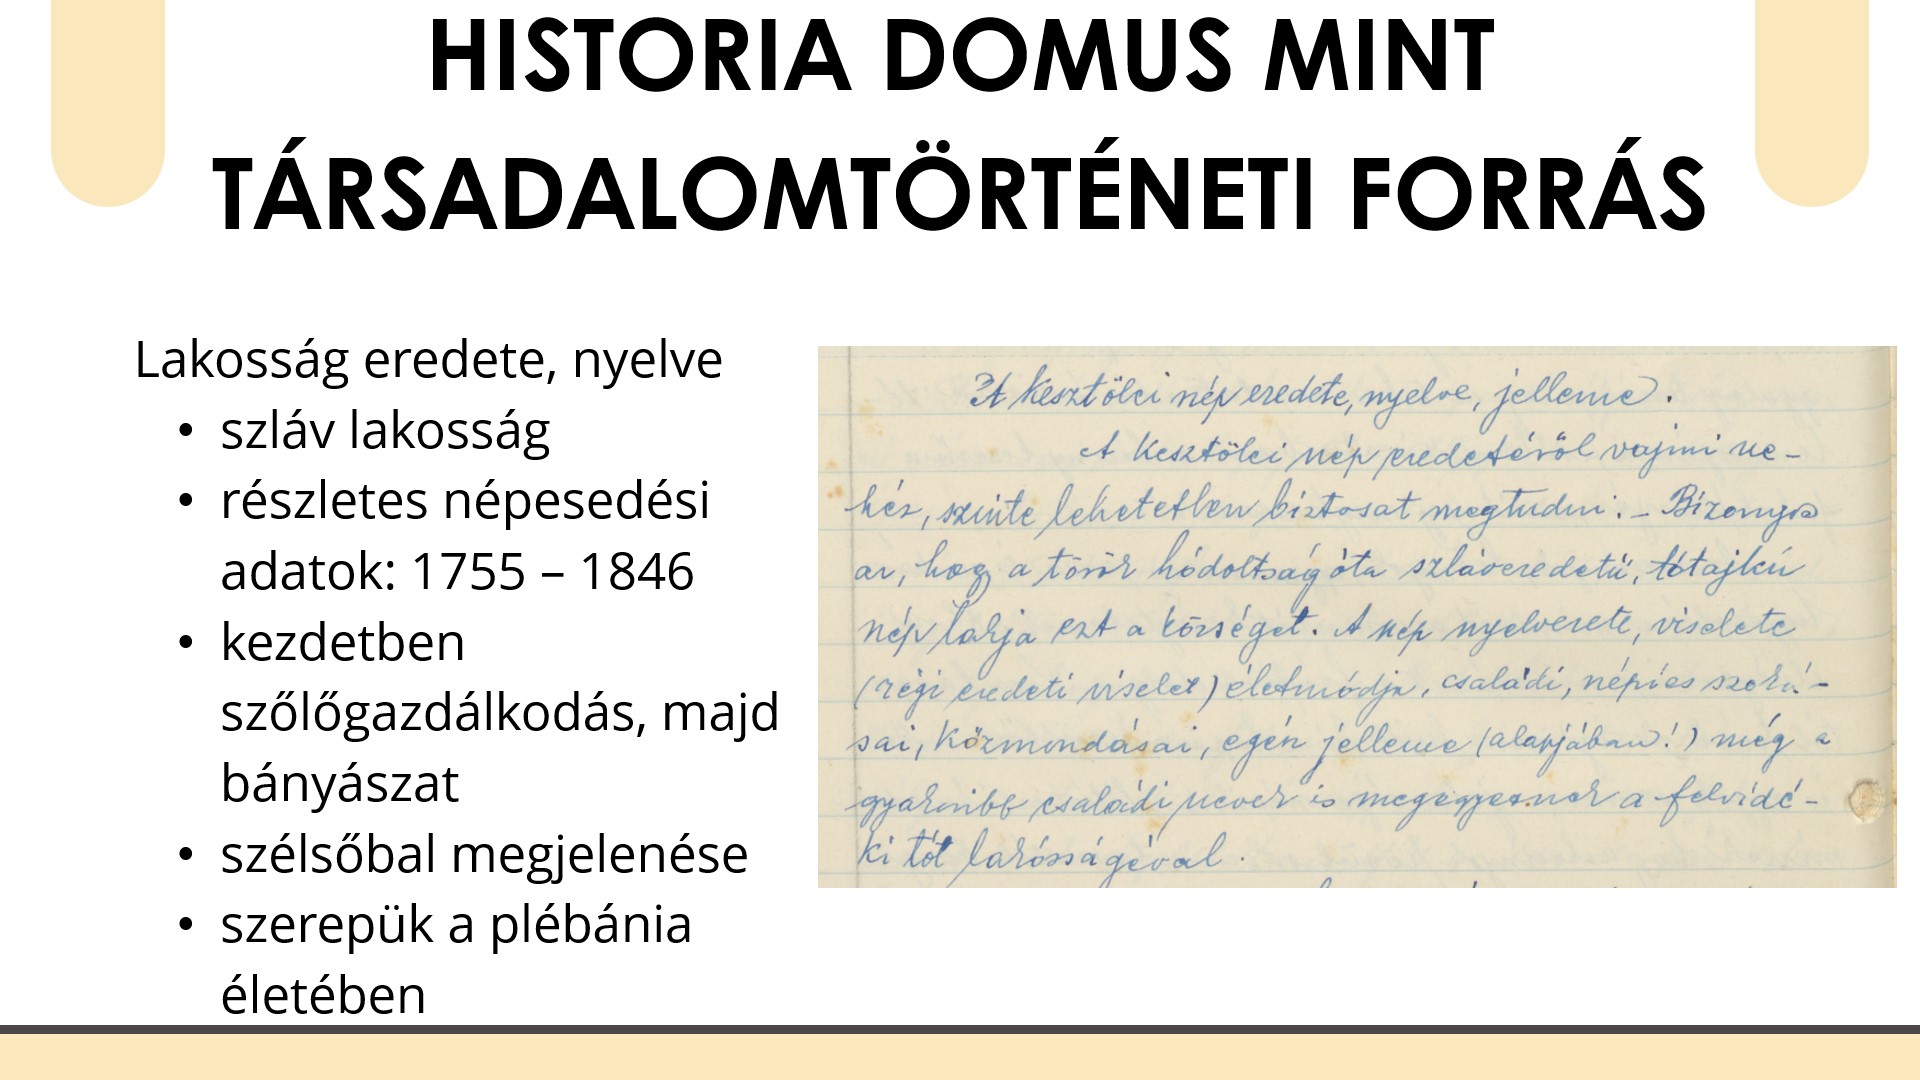 HISTORIA DOMUS MINT
TÁRSADALOMTÖRTÉNETI FORRÁS
Lakosság eredete, nyelve
• szláv lakosság
• részletes népesedési
adatok: 1755 – 1846
• kezdetben
szőlőgazdálkodás, majd
bányászat
• szélsőbal megjelenése
• szerepük a plébánia
életében
A kesztölci nép eredete, nyelve, jelleme.
A kesztölci nép eredetéről vajmi ne-
héz, szinte lehetetlen biztosat megtudni. – Bizonyos
az, hogy a török hódoltság óta szláveredetű, tótajkú
nép lakja ezt a községet. A nép nyelvezete, viselete
(régi eredeti viselet) életmódja, családi, népies szoká-
sai, közmondásai, egén jelleme (alapjában!) még a
gyakribb családi nevek is megegyeznek a felvidé-
ki tót lakósságéval.